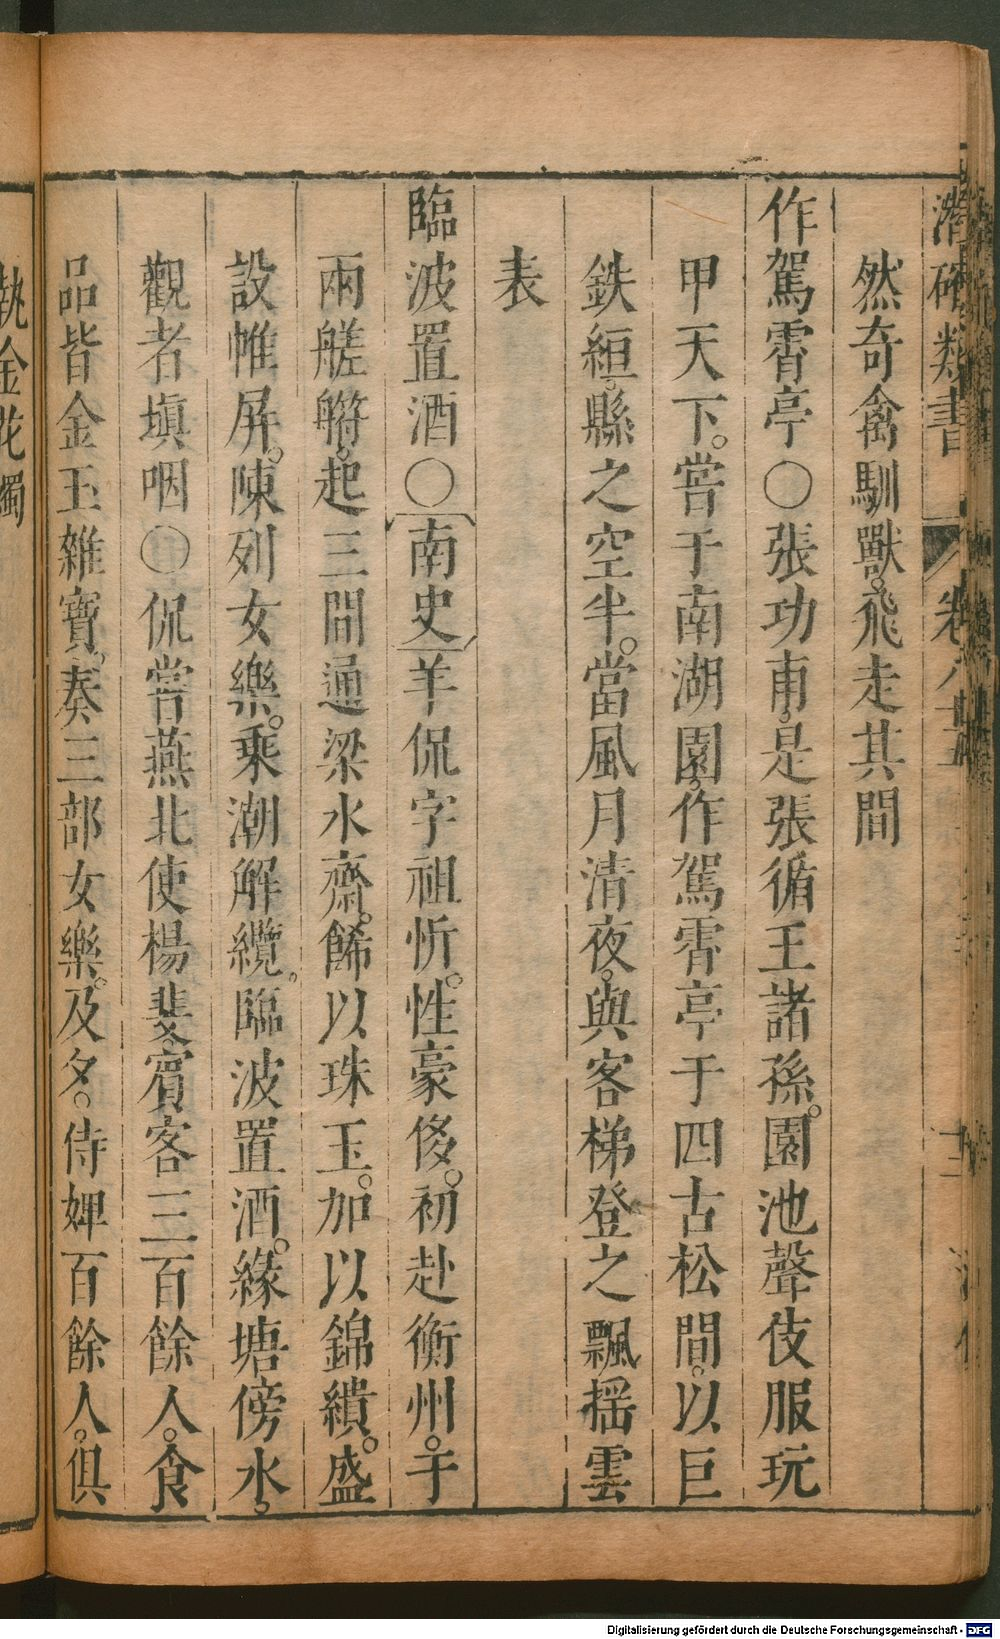 潛確類書 卷八十五
然奇禽馴獸。飛走其間
作駕霄亭〇張功甫。是張循王諸孫。園池聲伎服玩
甲天下。嘗于南湖園。作駕霄亭于四古松間。以巨
鉄絙。縣之空半。當風月清夜。與客梯登之飄揺雲
表
臨波置酒〇南史羊侃字祖忻。性豪侈。初赴衡州。于
兩艖䑰。起三間通梁水齋。餙以珠玉。加以錦繢。盛
設帷屏。陳列女樂。乘潮解纜。臨波置酒。緣塘傍水。
觀者塡咽〇侃嘗燕北使楊斐。賓客三百餘人。食
品皆金玉雜寶。奏三部女樂。及夕。侍婢百餘人。俱
執金花燭
Digitalisierung gefördert durch die Deutsche Forschungsgemeinschaft - DFG